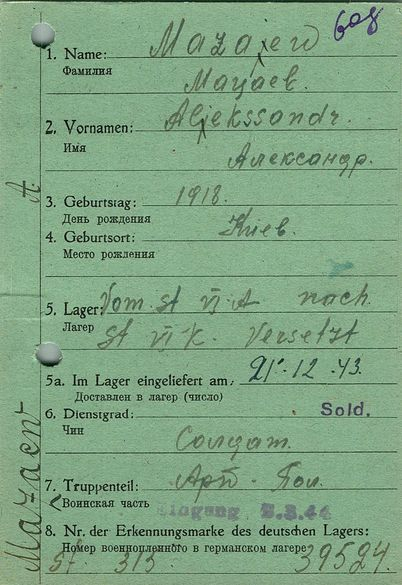 608
1. Name: Mazaew
Фамилия Мазаев.
2. Vornamen: Aljekssandr.
Имя
Александр.
3. Geburtstag: 1918.
День рождения
4. Geburtsort: Киев.
Место рождения
5. Lager: Vom. St VI A nach
Лагер St VI K. Versetzt
5a. Im Lager eingeliefert am: 21.12.43.
Доставлен в лагер (число)
6. Dienstgrad: Sold.
Чин
Солдат.
7. Truppenteil: Арт. Пол.
Воинская часть
Eingang
8. Nr. der Erkennungsmarke des deutschen Lagers:
Номер военнопленного в германском лагере
315 39524.
Mazaew A